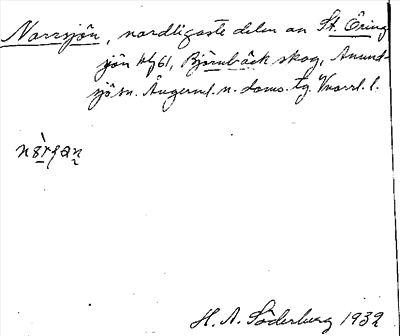 Norrsjön, nordligaste delen av St. Öring
sjön bl 61, Björnbäck skog, Anund-
sjö sn. Ångerml. n. doms. tg. Vnorrl. l.
H. A. Söderberg 1932